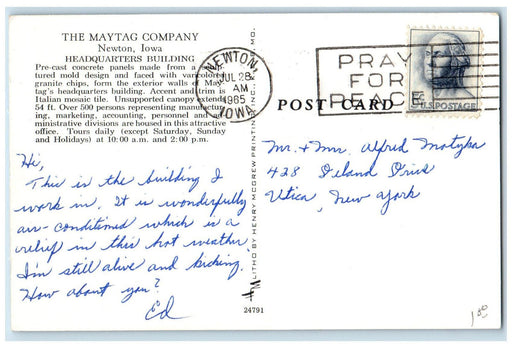 THE MAYTAG COMPANY
Newton, Iowa
HEADQUARTERS BUILDING
Pre-cast concrete panels made from a
tured mold design and faced with varicolored
granite chips, form the exterior walls of May-
tag's headquarters building. Accent and trim is
Italian mosaic tile. Unsupported canopy extends
54 ft. Over 500 persons representing manufactur-
ing, marketing, accounting, personnel and ad-
ministrative divisions are housed in this attractive
office. Tours daily (except Saturday, Sunday
and Holidays) at 10:00 a.m. and 2:00 p.m.
Hi,
This is the building I
work in. It is wonderfully
air-conditioned which is a
relief in this hot weather.
I'm still alive and kicking.
How about you?
Ed
LITHO BY HENRY MCGREW PRINTING INC., MO.
24791
NEWTON
JUL 28
AM
1965
IOWA
PRAY
FOR
PEACE
POST CARD
U.S. POSTAGE
Mr. + Mrs. Alfred Matyka
428 Leland Drive
Utica, New York
1 80